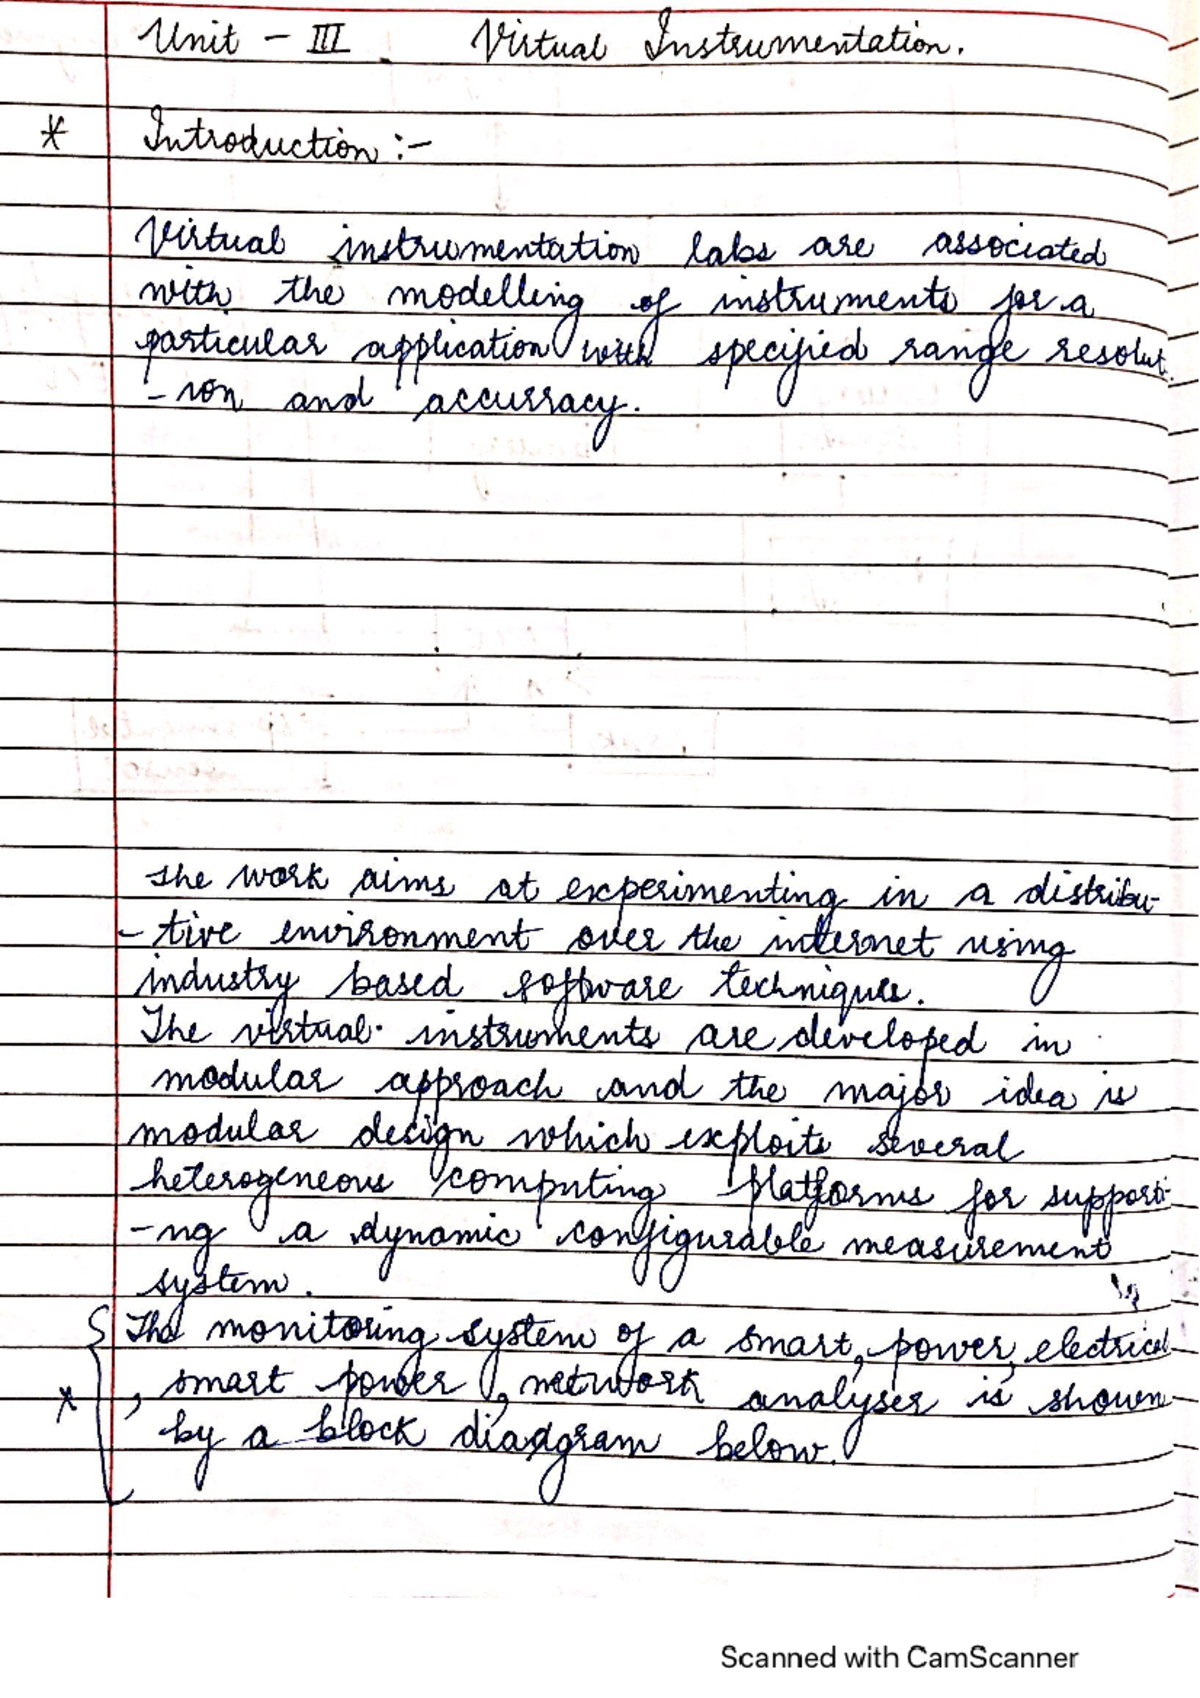 Unit - III Virtual Instrumentation.
* Introduction :-
Virtual instrumentation labs are associated
with the modelling of instruments for a
particular application with specified range resolut
- ion and accurracy.
The work aims at experimenting in a distribu-
- tive environment over the internet using
industry based software techniques.
The virtual instruments are developed in
modular approach and the major idea is
modular design which exploits several
heterogeneous computing platforms for supporti-
-ng a dynamic configurable measurement
system.
The monitoring system of a smart, power, electrical
* , smart power, network analyser is shown
by a block diadgram below.
Scanned with CamScanner